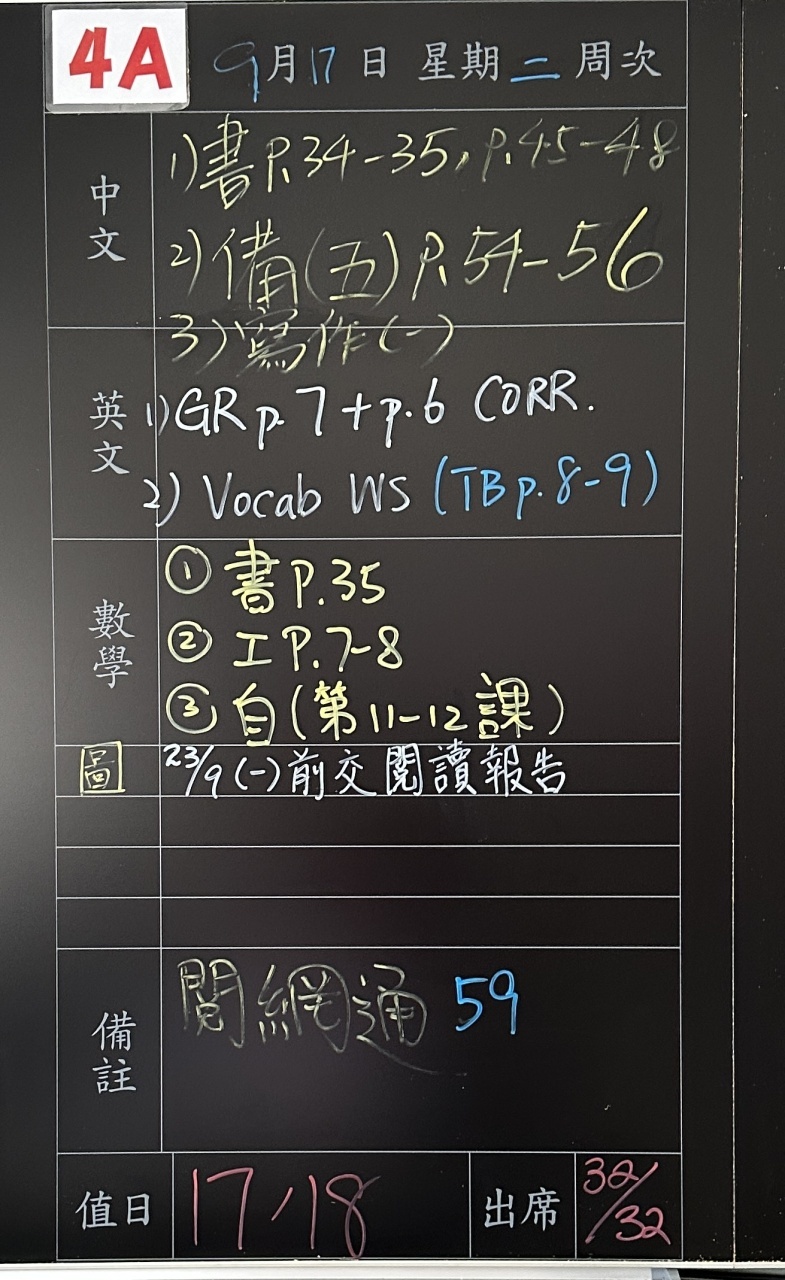 4A 9月17日 星期二 周次
中文
1)書P.34-35,P.45-48
2)備(五)P.54-56
3)寫作(一)
英文
1)GR p.7+p.6 CORR.
2) Vocab WS (TB p.8-9)
數學
① 書P.35
② 工P.7-8
③ 自(第11-12課)
圖 23/9(一)前交閱讀報告
備註 閱網通 59
值日 17/18 出席 32/32